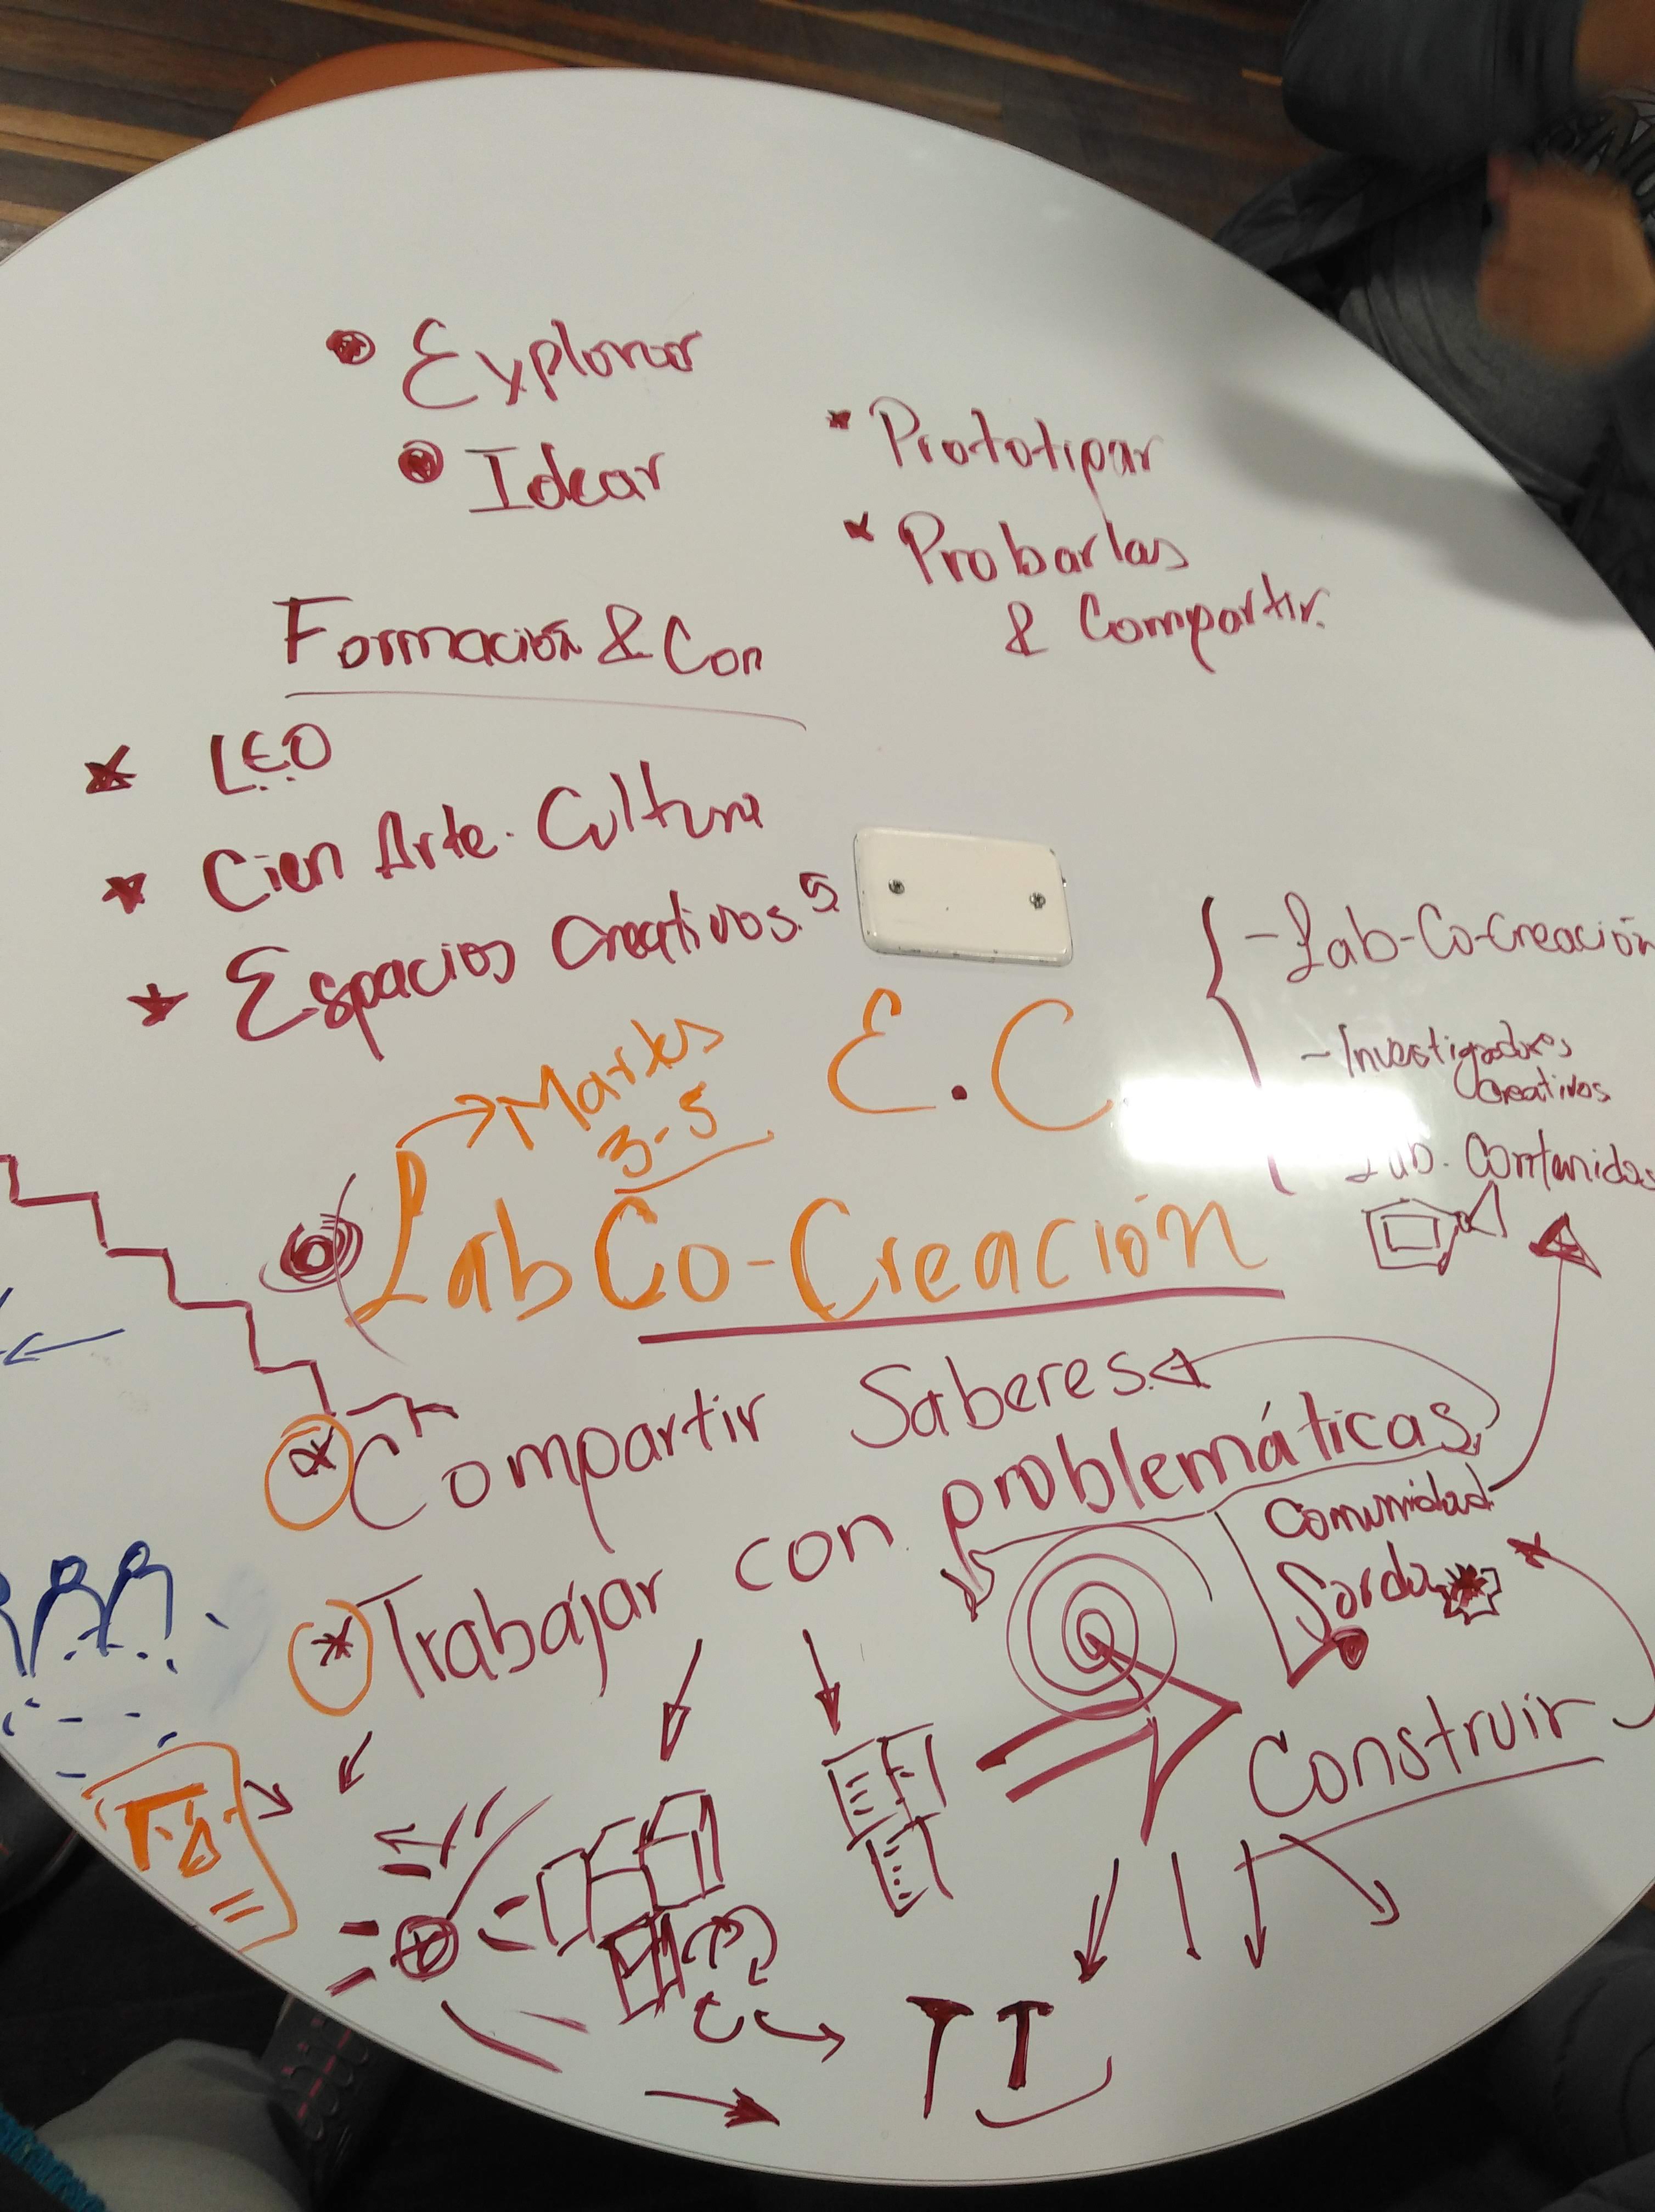 Explorar
Idear
Prototipar
Probarlas
& Compartir.
Formación & Con
LEO
Cien Arte. Cultura
Espacios Creativos. 5
E.C.
- Lab-Co-Creación
- Investigadores
Creativos
Lab. Contenidos
Martes
3-5
Lab Co-Creación
Compartir Saberes.
Trabajar con problemáticas
Comunidad
Sorda
Construir